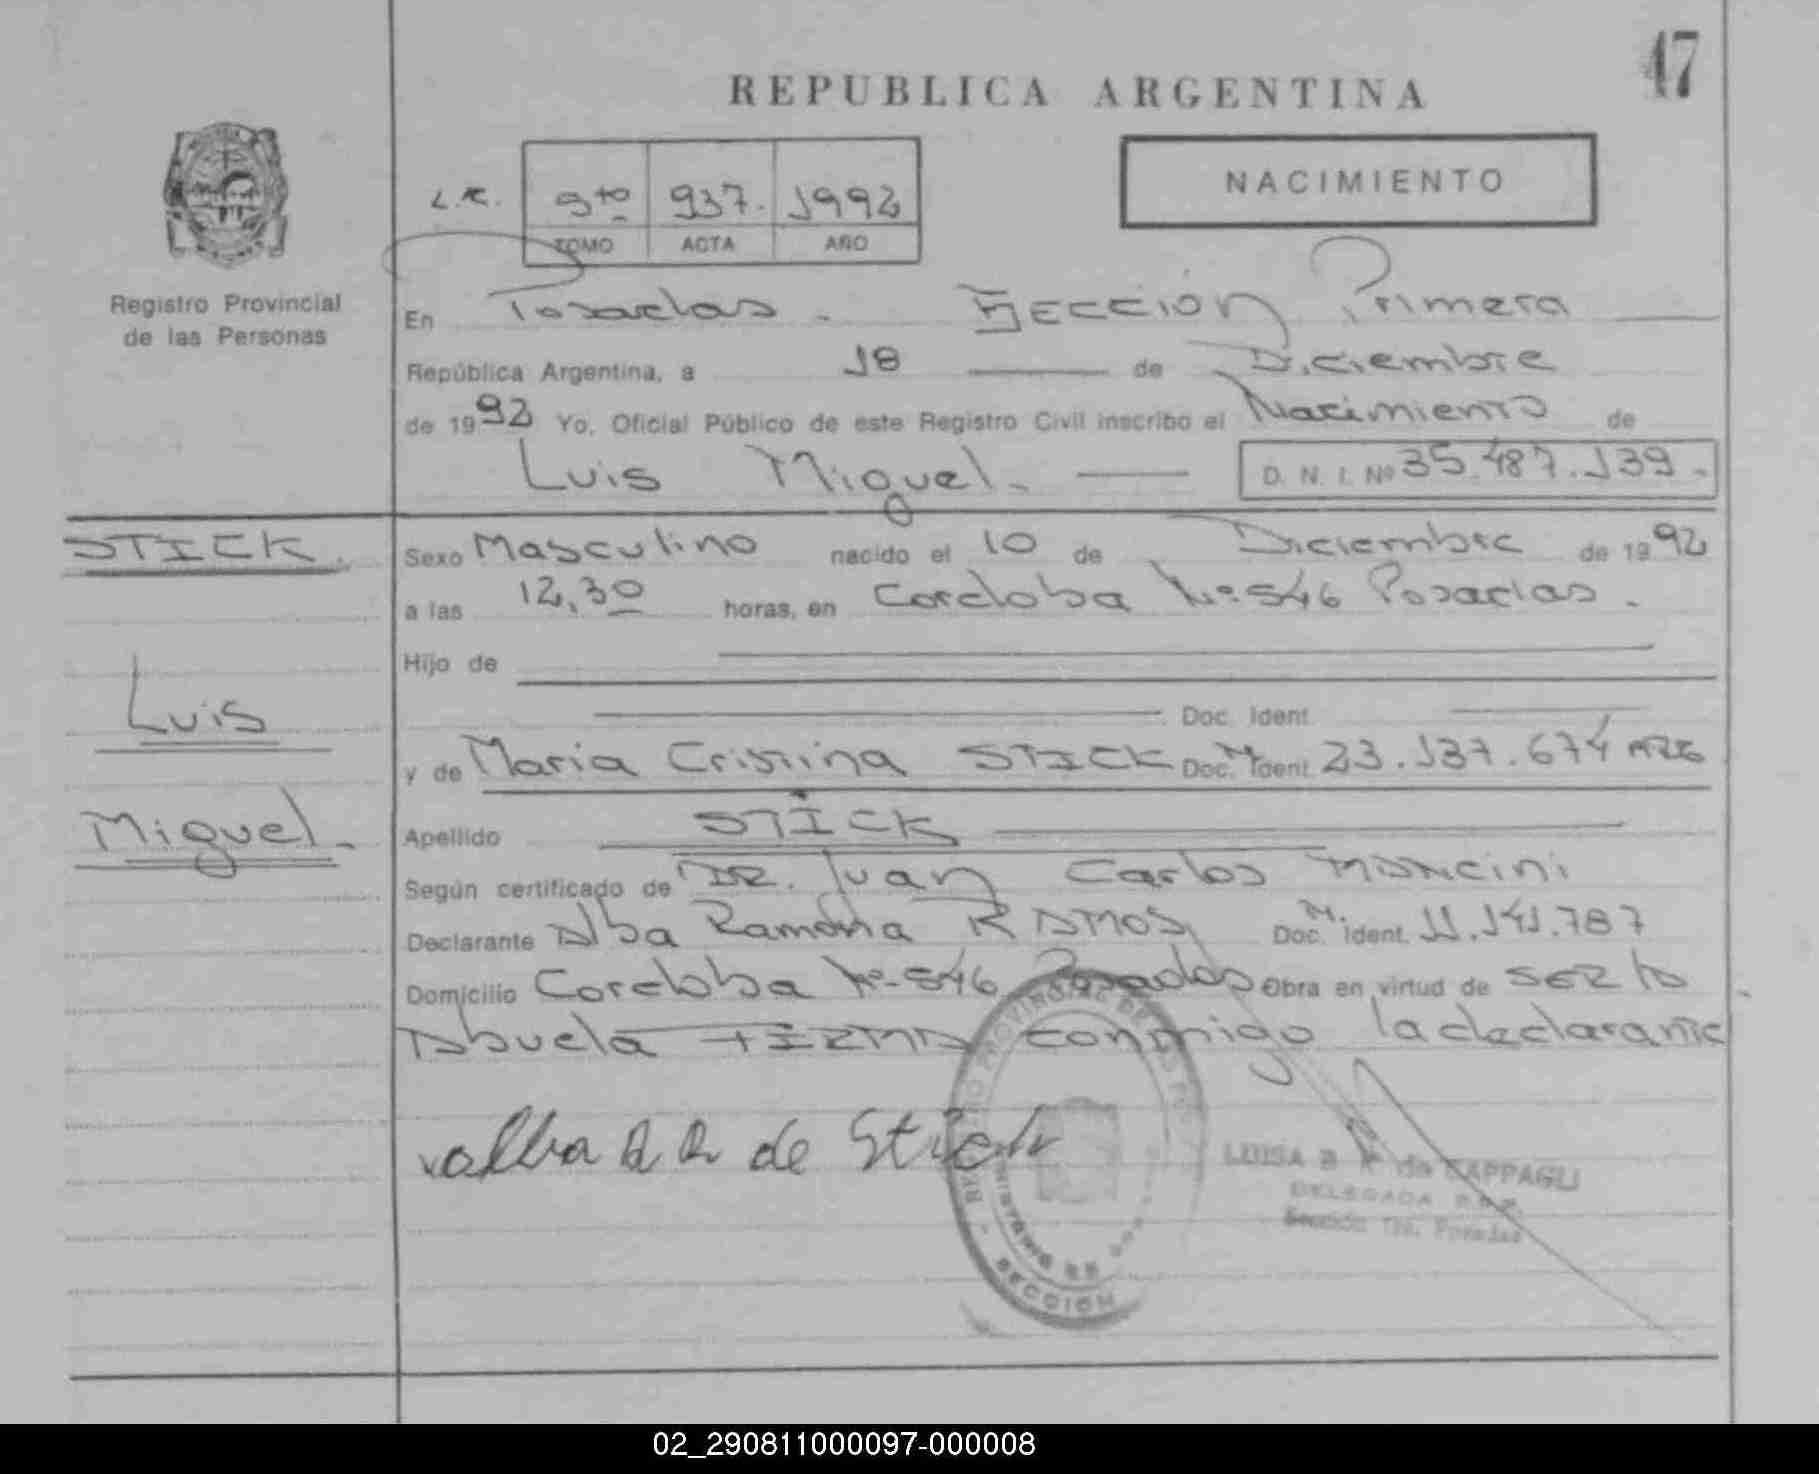 47
REPUBLICA ARGENTINA
NACIMIENTO
L.R. 9to 937. 1992
TOMO ACTA AÑO
Registro Provincial
de las Personas
En Posadas. Sección Primera
República Argentina, a 18 de Diciembre
de 1992 Yo, Oficial Público de este Registro Civil inscribo el Nacimiento de
Luis Miguel. D. N. I. Nº 35.487.139.
STICK.
Luis
Miguel.
Sexo Masculino nacido el 10 de Diciembre de 1992
a las 12,30 horas, en Cordoba Nº 546 Posadas.
Hijo de
Doc. Ident.
y de Maria Cristina STICK Doc. Ident. 23.137.674
Apellido STICK
Según certificado de DR. Juan Carlos Mancini
Declarante Alba Ramona RAMOS Doc. Ident. 11.141.787
Domicilio Cordoba Nº 546 Posadas Obra en virtud de ser la
Abuela FIRMA conmigo la declarante
Alba R R de Stick
REGISTRO PROVINCIAL DE LAS
MINISTERIO DE
SECCION
LUISA B de CAPPAGLI
DELEGADA
Sección Posadas
02_290811000097-000008